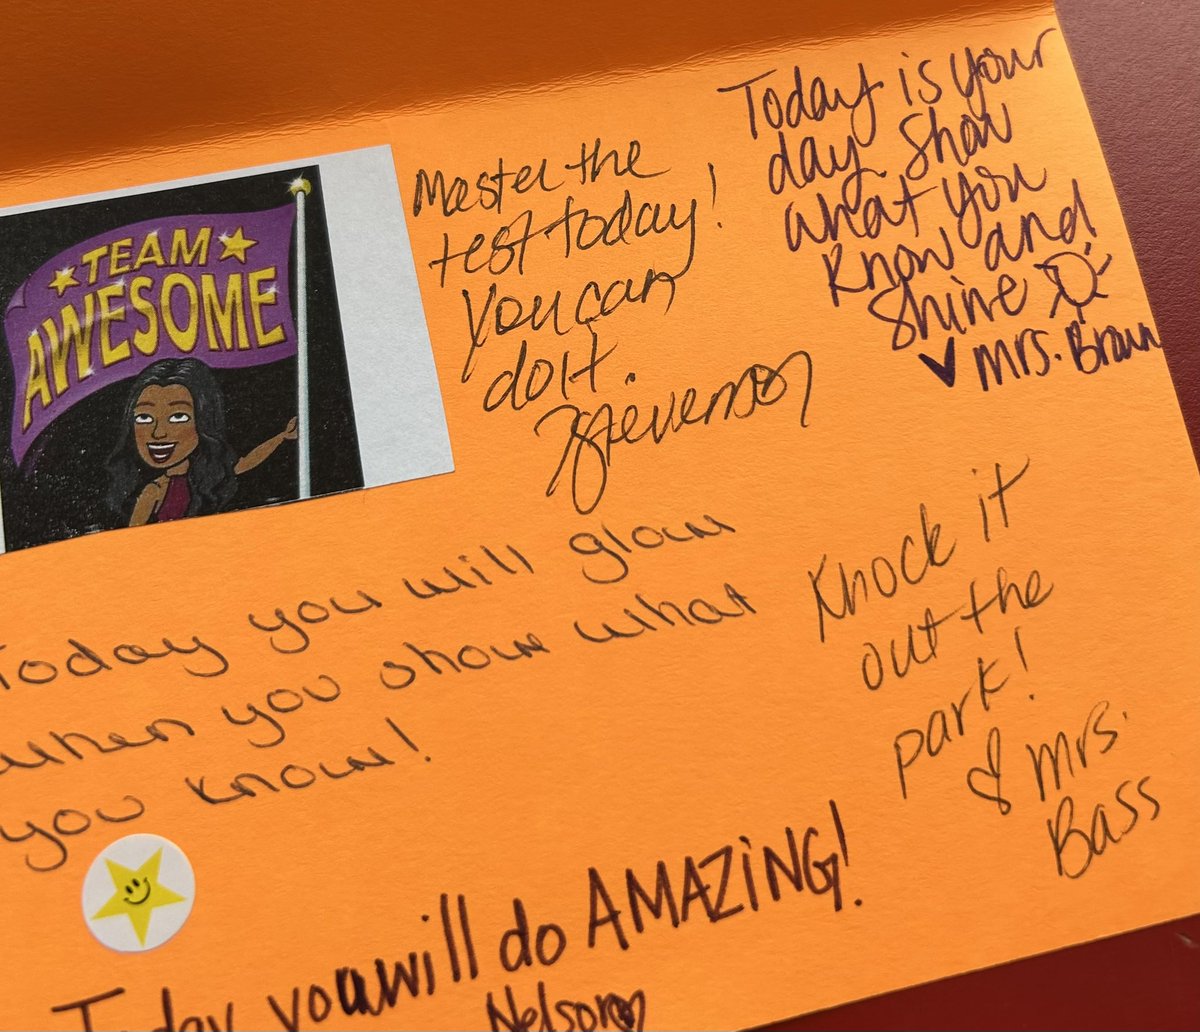 TEAM
AWESOME
Master the
test today!
You can
do it.
Stevenson
Today is your
day. Show
what you
know and
shine
Mrs. Braun
Today you will glow
when you show what
you know!
Knock it
out the
park!
Mrs.
Bass
Today you will do AMAZING!
Nelson